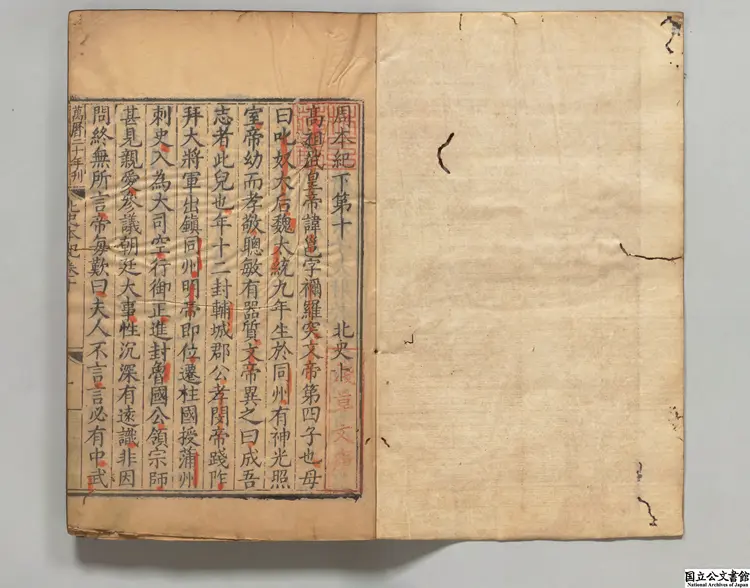 周本紀下第十 北史十
高祖武皇帝諱邕字禰羅突文帝第四子也母
曰叱奴太后魏大統九年生於同州有神光照
室帝幼而孝敬聰敏有器質文帝異之曰成吾
志者此兒也年十二封輔城郡公孝閔帝踐阼
拜大將軍出鎮同州明帝即位遷柱國授蒲州
刺史入為大司空行御正進封魯國公領宗師
甚見親愛參議朝廷大事性沉深有遠識非因
問終無所言帝每歎曰夫人不言言必有中武
萬曆二十年刊
北史本紀卷十
国立公文書館
National Archives of Japan